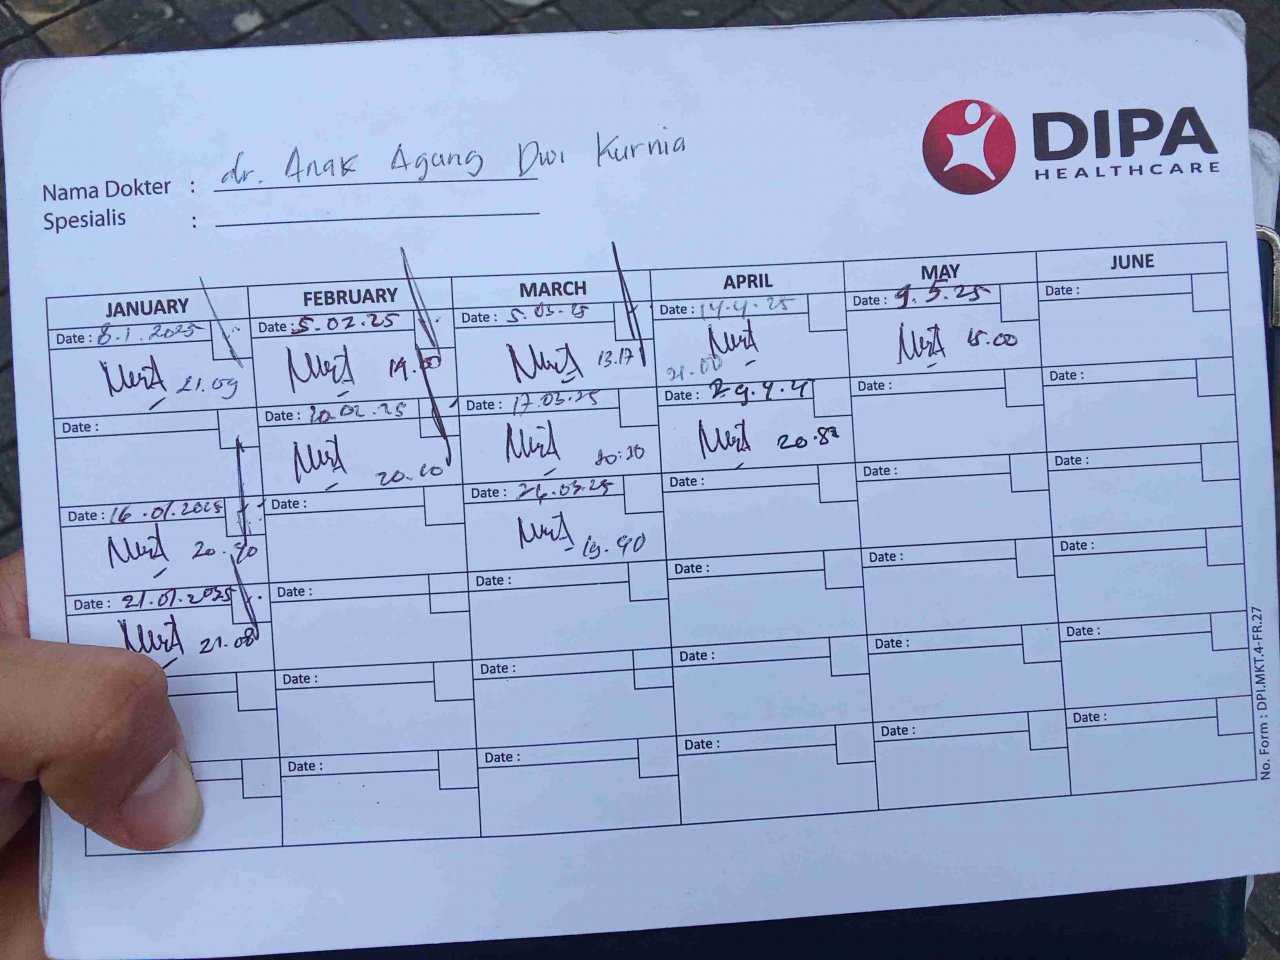 DIPA
HEALTHCARE
Nama Dokter : dr. Anak Agung Dwi Kurnia
Spesialis :
JANUARY FEBRUARY MARCH APRIL MAY JUNE
Date : 8.1.2025 Date : 5.02.25 Date : 5.03.25 Date : 14.4.25 Date : 9.5.25 Date :
21.09 19.00 13.17 21.00 15.00
Date : Date : 10.02.25 Date : 17.03.25 Date : Date : Date :
20.10 20:30
Date : 16.01.2025 Date : Date : 26.03.25 Date : Date : Date :
20.40 19.40
Date : 21.01.2025 Date : Date : Date : Date : Date :
21.08
Date : Date : Date : Date : Date :
Date : Date : Date : Date : Date :
No. Form : DPI.MKT.4-FR.27